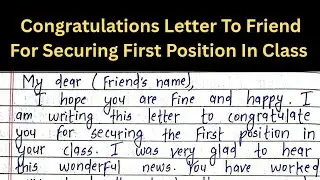 Congratulations Letter To Friend
For Securing First Position In Class
My dear (Friend's name),
I hope you are fine and happy. I
am writing this letter to congratulate
you for securing the first position in
your class. I was very glad to hear
this wonderful news. You have worked